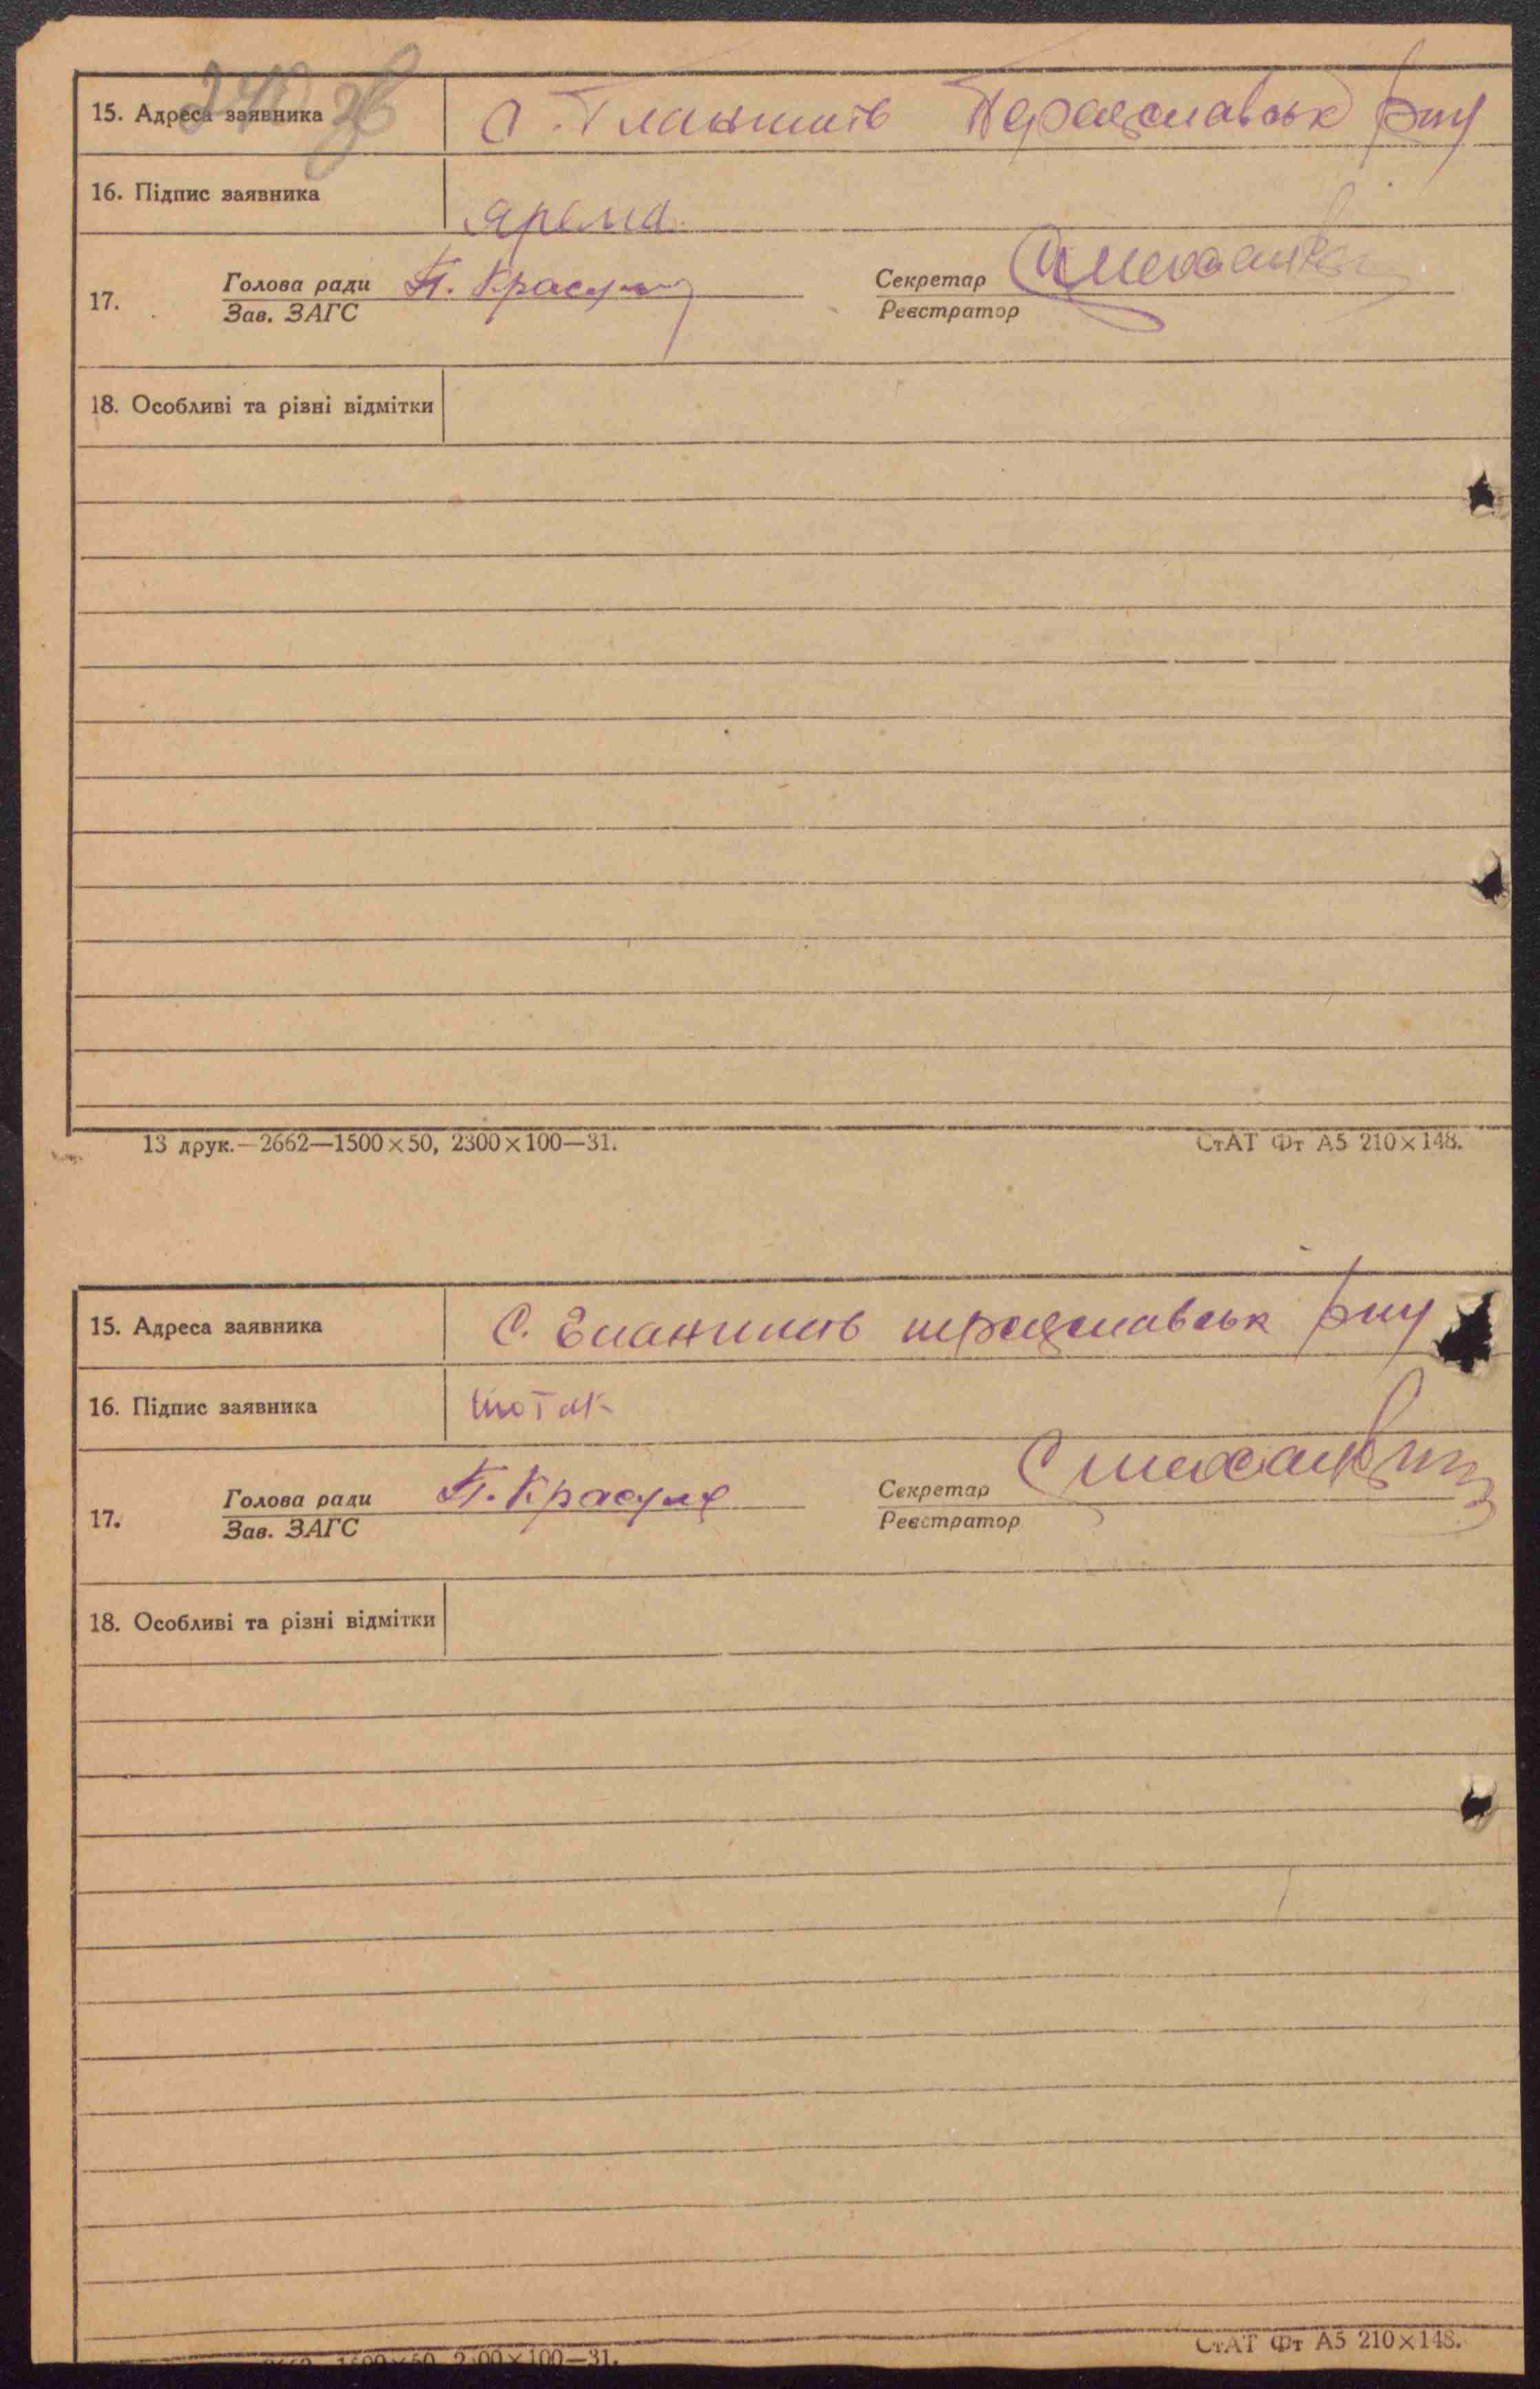 240 зв
15. Адреса заявника С. Гланишів Переяславськ р-ну
16. Підпис заявника Ярема
17. Голова ради П. Красу Секретар
Зав. ЗАГС Реєстратор
18. Особливі та різні відмітки
13 друк.—2662—1500×50, 2300×100—31. СтАТ Фт А5 210×148.
15. Адреса заявника С. Гланишів переяславськ р-ну
16. Підпис заявника
17. Голова ради П. Красу Секретар
Зав. ЗАГС Реєстратор
18. Особливі та різні відмітки
2662—1500×50, 2300×100—31. СтАТ Фт А5 210×148.